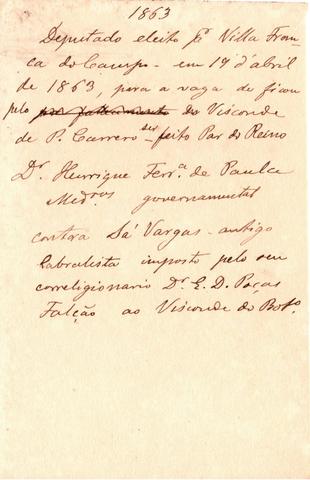 1863
Deputado eleito pᵒ Villa Fran-
ca do Campo - em 19 d'abril
de 1863, para a vaga de ficou
pelo por fallecimento do Visconde
de P. Carrero ser feito Par do Reino
Dr. Henrique Ferrᵃ de Paula
Medrᵒˢ governamental
contra Sá Vargas - antigo
Cabralista imposto pelo seu
correligionario Dr. E. D. Poças
Falcão ao Visconde do Botᵒ.